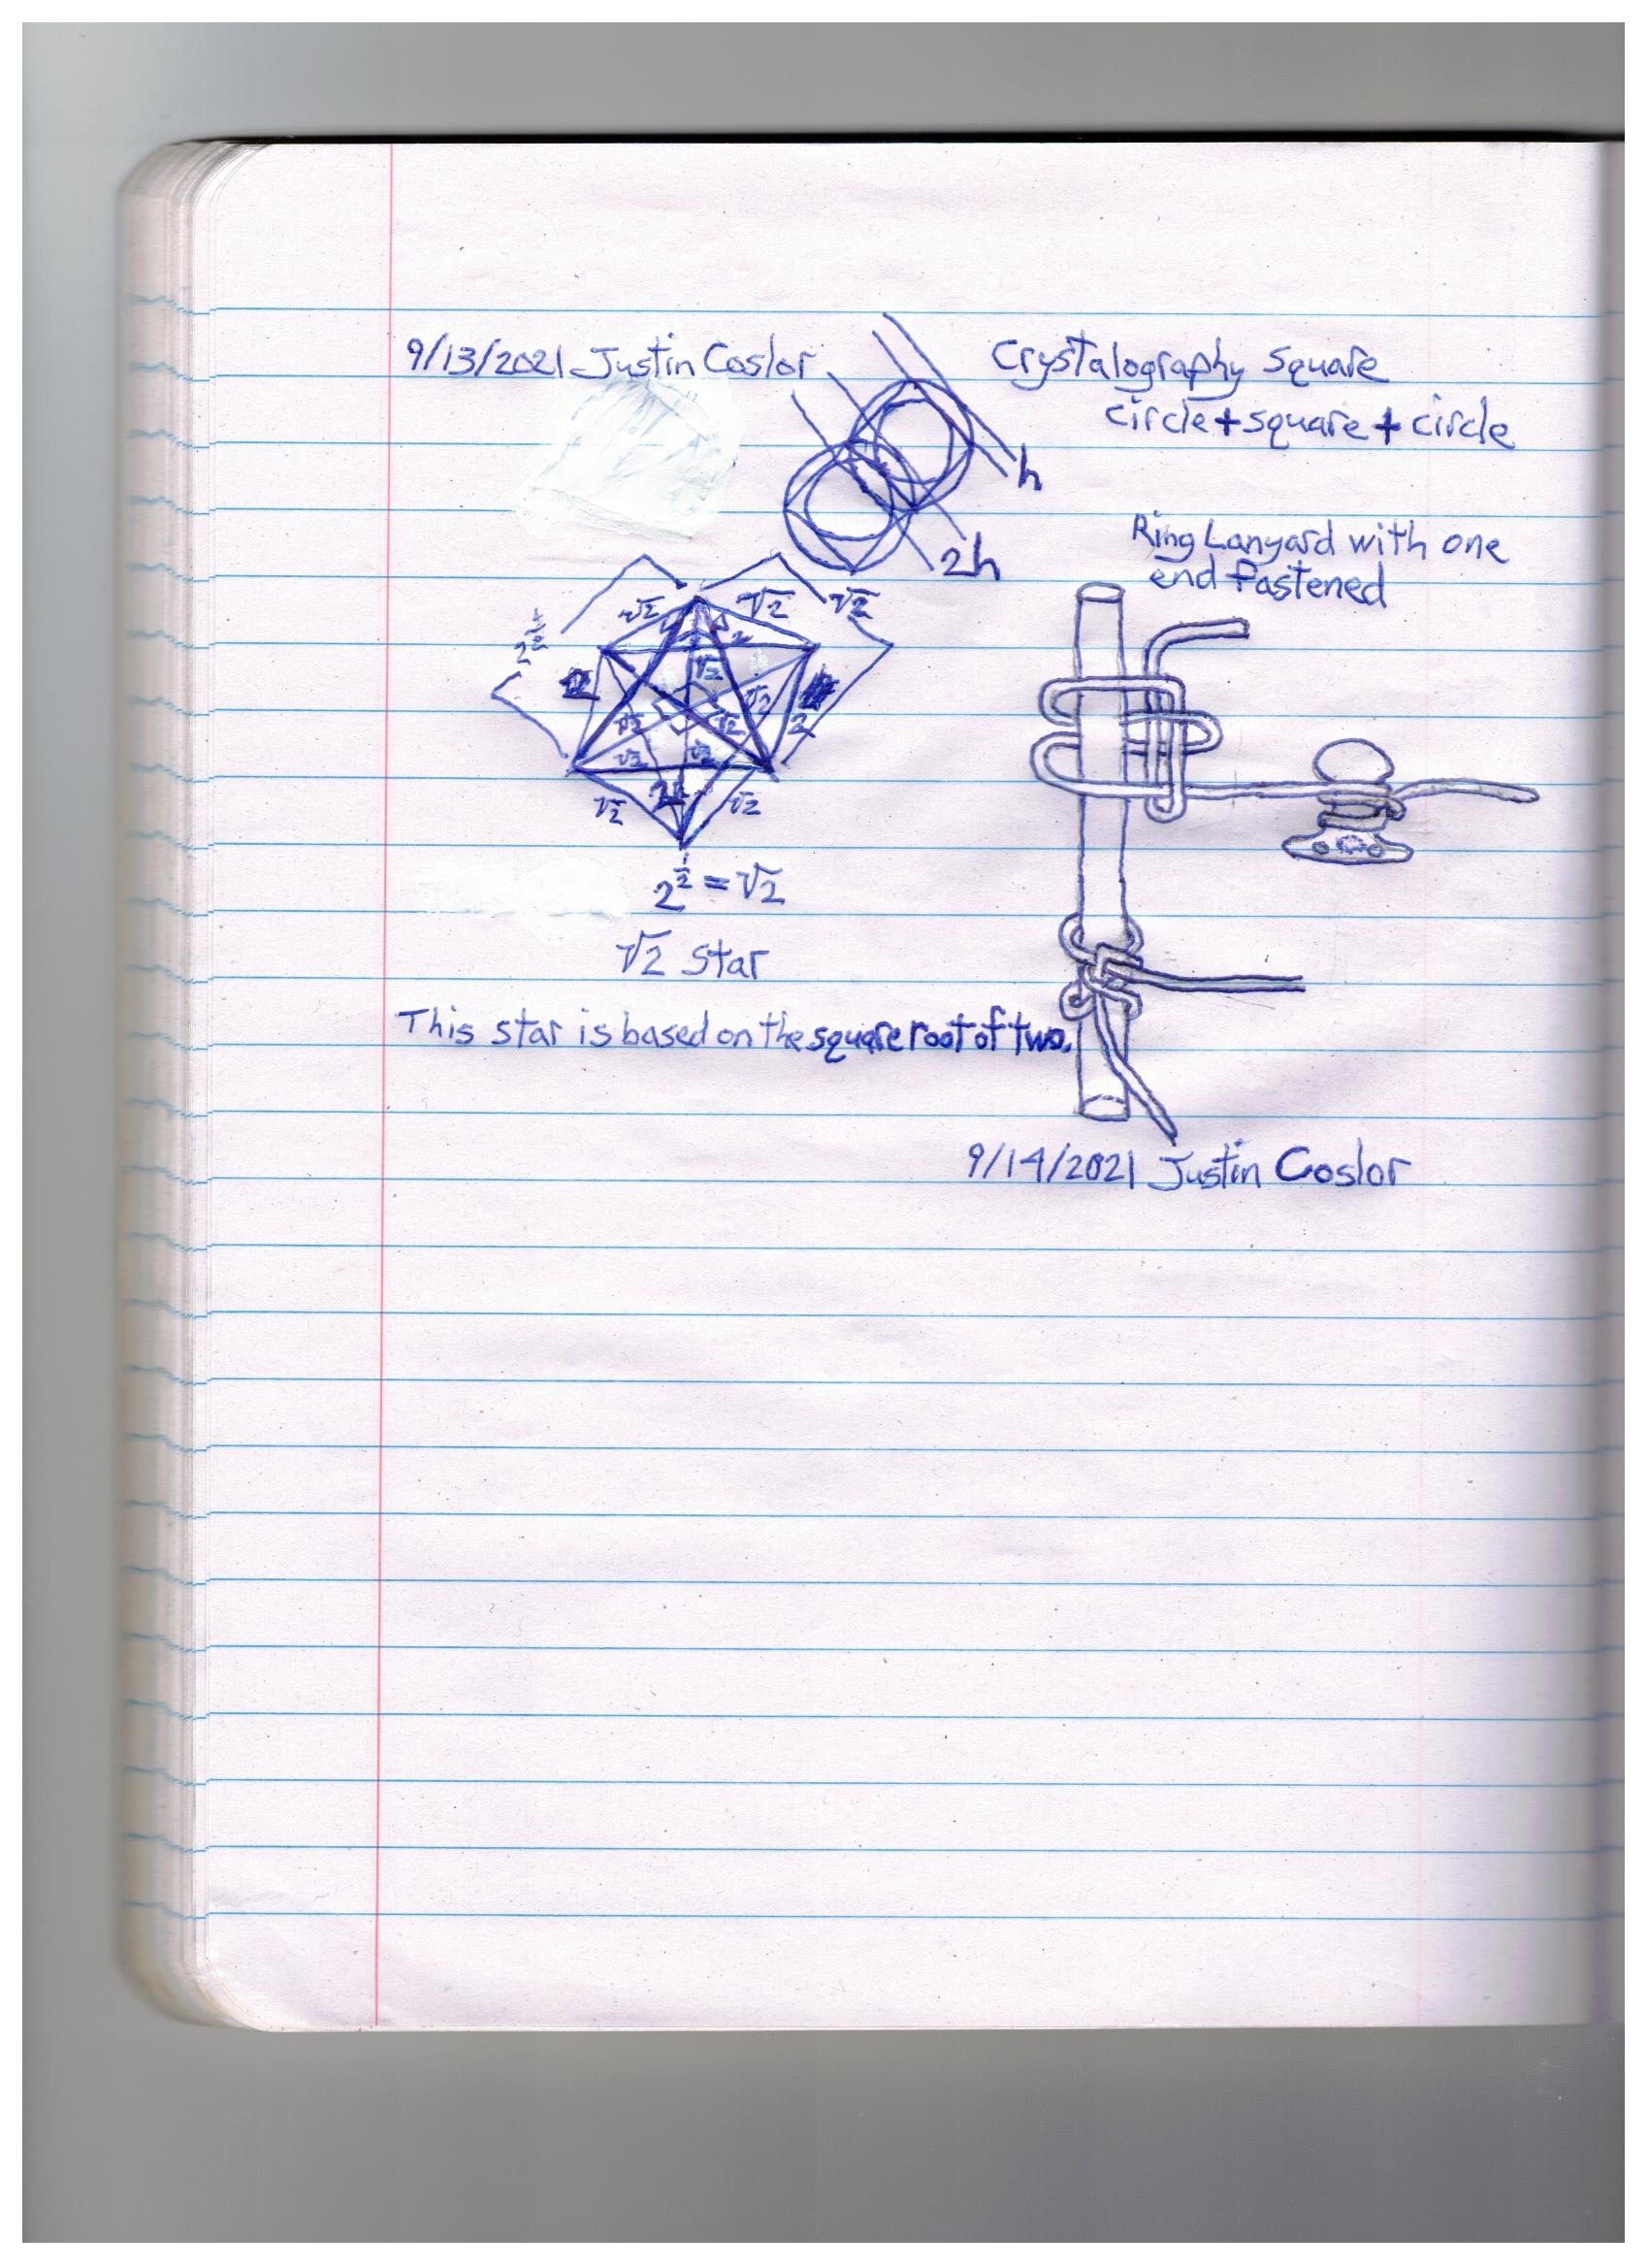 9/13/2021 Justin Coslor
Crystalography Square
circle + square + circle
h
2h
Ring Lanyard with one
end fastened
√2 √2 √2
2^½
2
√2
√2
2
√2 √2
√2 √2
√2 √2
2^½ = √2
√2 Star
This star is based on the square root of two.
9/14/2021 Justin Coslor